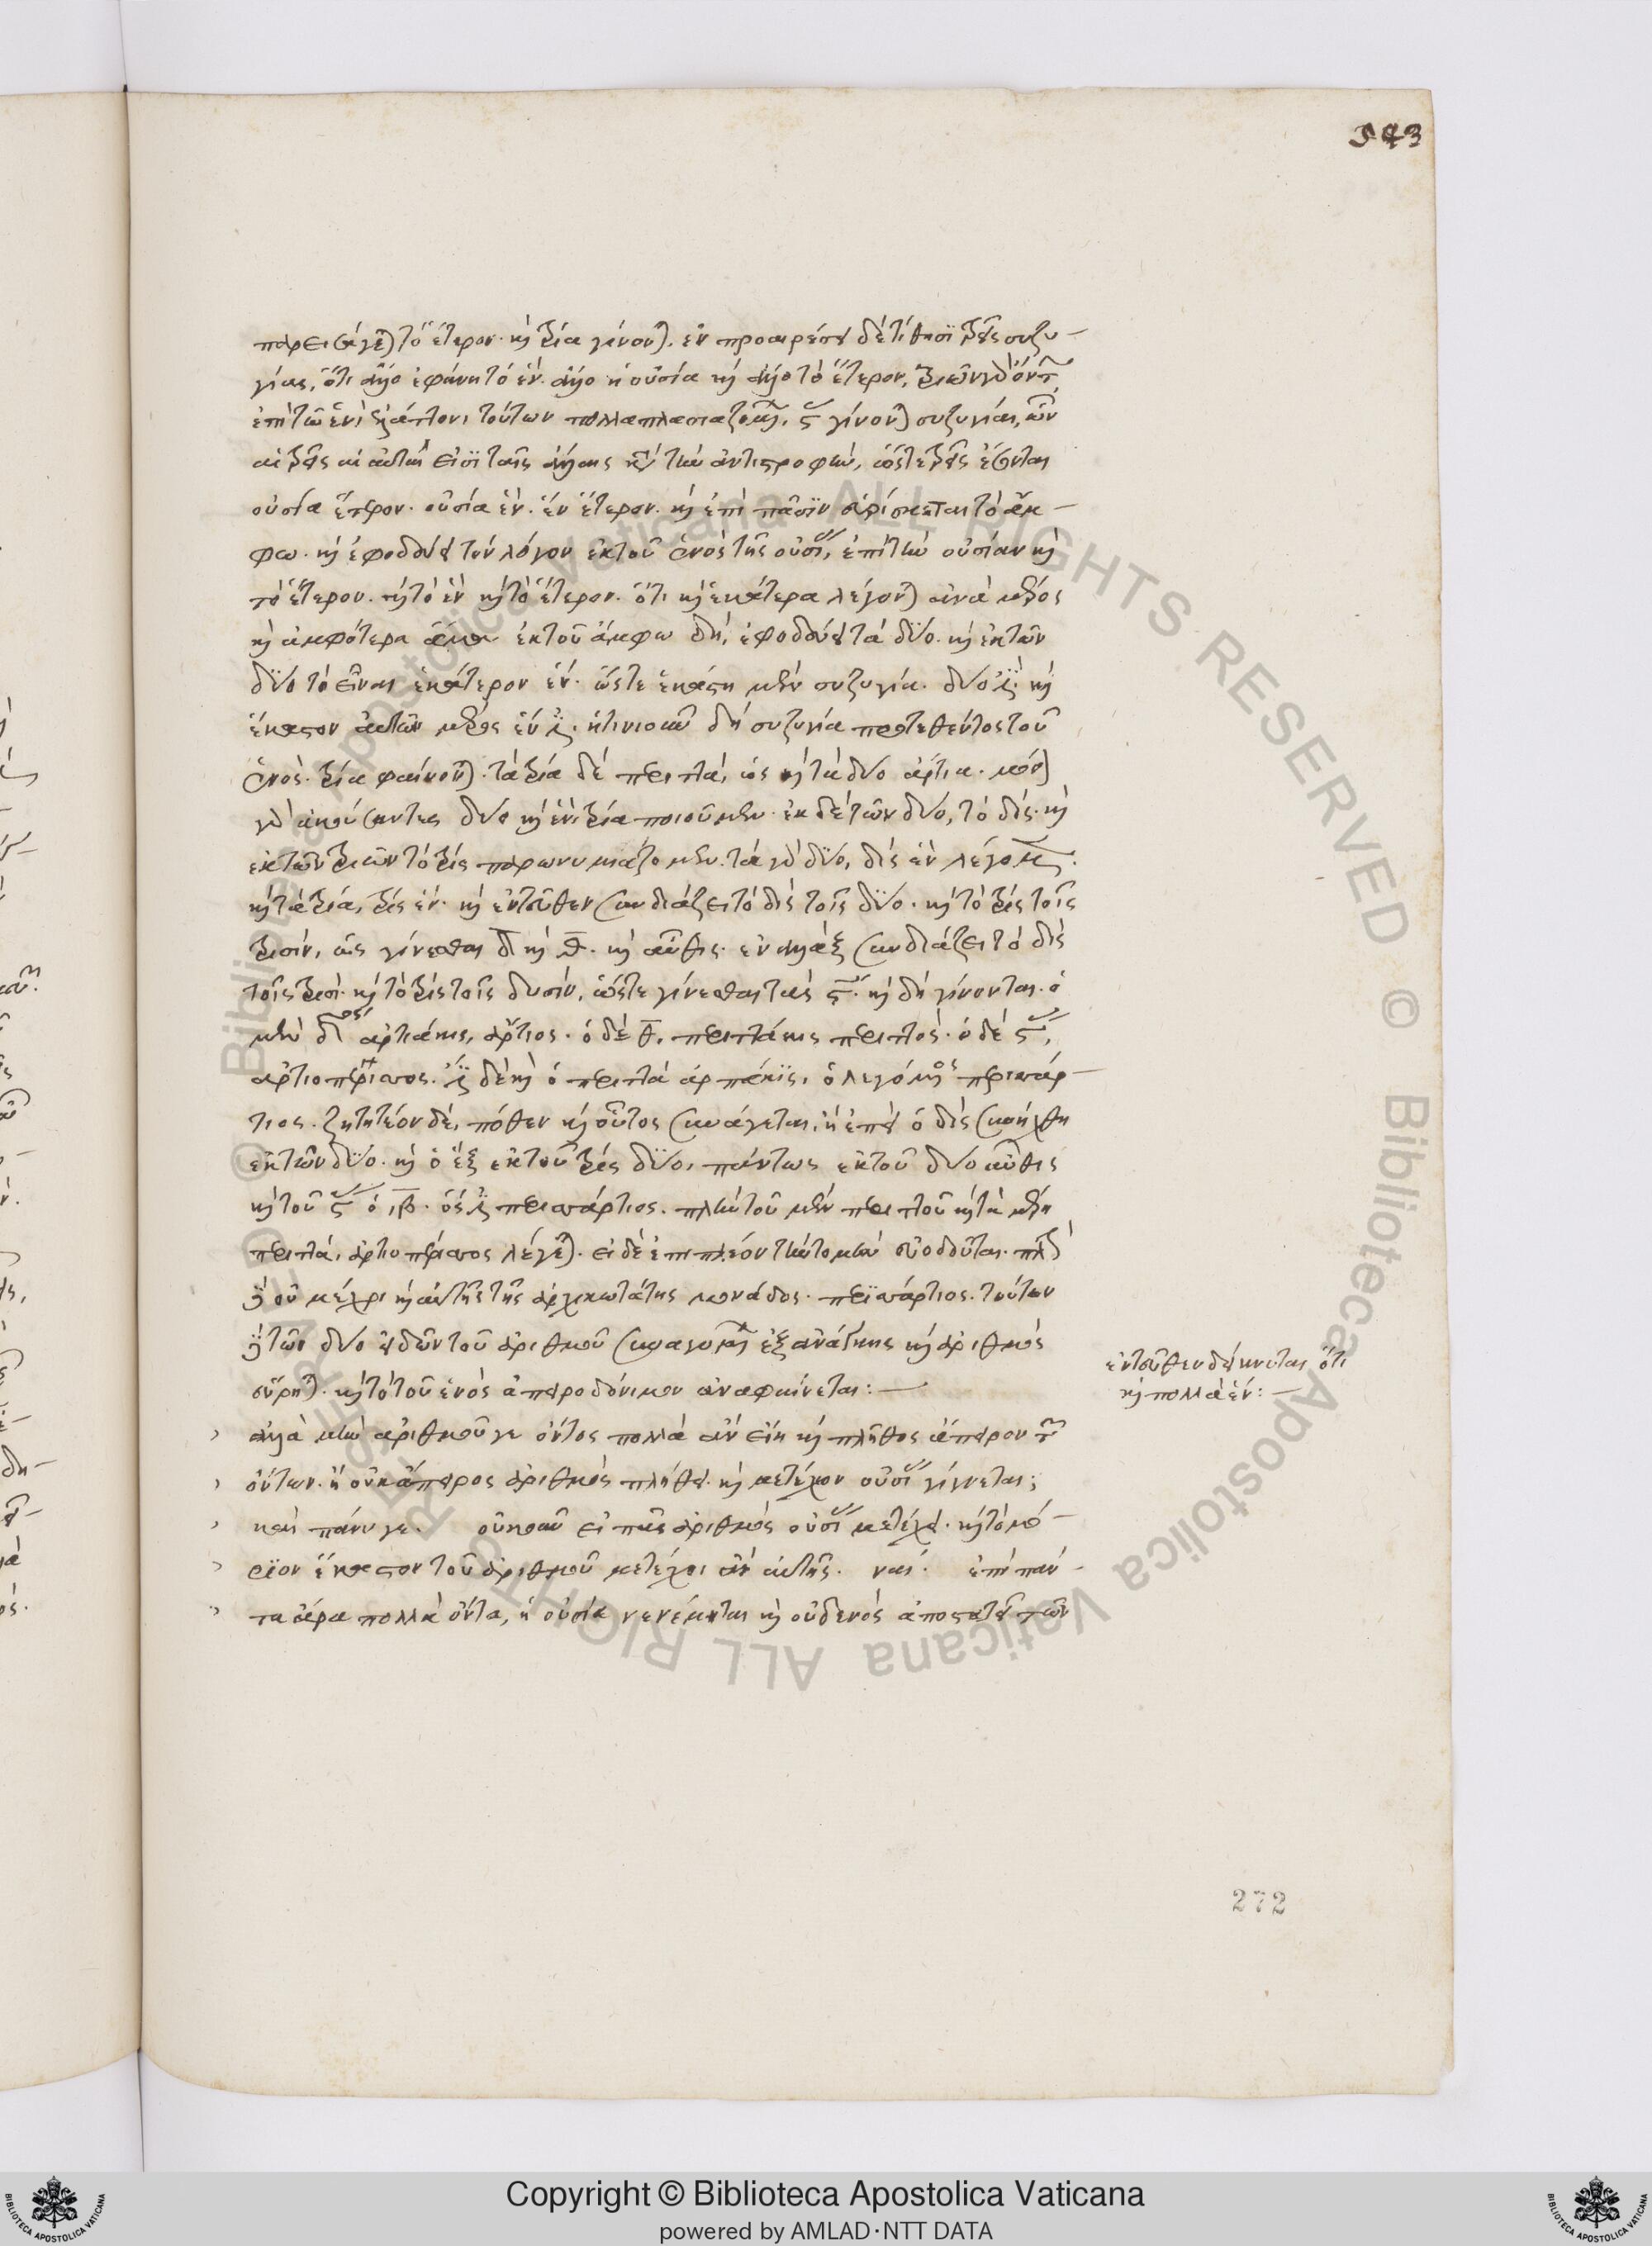 343
παρεισάγεται τὸ ἕτερον. καὶ τρία γίνονται. ἐν προαιρέσει δὲ τίθησι τρεῖς συζυ-
γίας, ὅτι ἄλλο ἐφάνη τὸ ἕν. ἄλλο ἡ οὐσία καὶ ἄλλο τὸ ἕτερον. τριῶν γὰρ ὄντων
ἐπὶ τῶ ἑνὶ ἐλάττονι τούτων πολλαπλασιαζομένων, ϛ γίνονται συζυγίαι, ὧν
αἱ τρεῖς αἱ αὐταί εἰσι ταῖς ἄλλαις κατὰ τὴν ἀντιστροφήν, ὥστε τρεῖς ἔσονται
οὐσία ἕτερον. οὐσία ἕν. ἓν ἕτερον. καὶ ἐπὶ πᾶσιν εὑρίσκεται τὸ ἄμ-
φω. καὶ ἐφοδεύει τὸν λόγον ἐκ τοῦ ἑνὸς τῆς οὐσίας, ἐπὶ τὴν οὐσίαν καὶ
τὸ ἕτερον. καὶ τὸ ἓν καὶ τὸ ἕτερον. ὅτι καὶ ἑκάτερα λέγονται ἀνὰ μέρος
καὶ ἀμφότερα ἅμα ἐκ τοῦ ἄμφω δὴ, ἐφοδεύει τὰ δύο. καὶ ἐκ τῶν
δύο τὸ εἶναι ἑκάτερον ἕν. ὥστε ἑκάστη μὲν συζυγία. δύο ἐστὶ. καὶ
ἕκαστον αὐτῶν μέρος ἕν ἐστι. ᾑτινιοῦν δὴ συζυγία προστεθέντος τοῦ
ἑνός. τρία φαίνονται. τὰ τρία δὲ περιττά, ὡς καὶ τὰ δύο ἄρτια.
γὰρ ἀκούσαντες δύο καὶ ἑνὶ τρία ποιοῦμεν. ἐκ δὲ τῶν δύο, τὸ δίς. καὶ
ἐκ τῶν τριῶν τὸ τρὶς παρωνυμιάζομεν. τὰ γὰρ δύο, δὶς ἓν λέγομεν.
καὶ τὰ τρία, τρὶς ἕν. καὶ ἐντεῦθεν συνδιάζει τὸ δὶς τοῖς δύο. καὶ τὸ τρὶς τοῖς
τρισίν, ὡς γίνεσθαι δ καὶ θ. καὶ αὖθις. ἐναλλὰξ συνδιάζει τὸ δὶς
τοῖς τρισὶ. καὶ τὸ τρὶς τοῖς δυσίν, ὥστε γίνεσθαι τὰς ϛ. καὶ δὴ γίνονται. ὁ
μὲν δος ἀρτιάκις, ἄρτιος. ὁ δὲ θ, περιττάκις περιττός. ὁ δὲ ϛ,
ἀρτιοπέριττος. ἔστι δὲ καὶ ὁ περιττὰ ἀρτιάκις, ὁ λεγόμενος περισσάρ-
τιος. ζητητέον δέ, πόθεν καὶ οὗτος συνάγεται, ἢ ἐπεὶ ὁ δὶς συνήχθη
ἐκ τῶν δύο. καὶ ὁ ἓξ ἐκ τοῦ τρὶς δύο, πάντως ἐκ τοῦ δύο αὖθις
καὶ τοῦ ϛ ὁ ιβ. ὅς ἐστι περισσάρτιος. πλὴν τοῦ μὲν περιττοῦ κατὰ μέρη
περιττά, ἀρτιοπέρισσος λέγεται. εἰ δὲ ἐπιπλέον τὴν τομὴν εὐοδοῦται. πλὴν
οὐ μέχρι καὶ αὐτῆς τῆς ἀρχικωτάτης μονάδος. περισσάρτιος. τούτων
τῶν δύο εἰδῶν τοῦ ἀριθμοῦ συναγομένων ἐξανάγκης καὶ ἀριθμὸς
εὕρηται. καὶ τὸ τοῦ ἑνὸς ἀπειροδύναμον ἀναφαίνεται: —
ἐντεῦθεν δείκνυται ὅτι
καὶ πολλὰ ἕν: —
ἀλλὰ μὴν ἀριθμοῦ γε ὄντος πολλὰ ἂν εἴη καὶ πλῆθος ἄπειρον τῶν
ὄντων. ἢ οὐκ ἄπειρος ἀριθμὸς πλήθει. καὶ μετέχον οὐσίας γίγνεται;
καὶ πάνυ γε. οὐκοῦν εἰ πᾶς ἀριθμὸς οὐσίας μετέχει. καὶ τὸ μό-
ριον ἕκαστον τοῦ ἀριθμοῦ μετέχοι ἂν αὐτῆς. ναί. ἐπὶ πάν-
τα ἄρα πολλὰ ὄντα, ἡ οὐσία νενέμηται καὶ οὐδενὸς ἀποστατεῖ τῶν
272
Copyright © Biblioteca Apostolica Vaticana
powered by AMLAD·NTT DATA